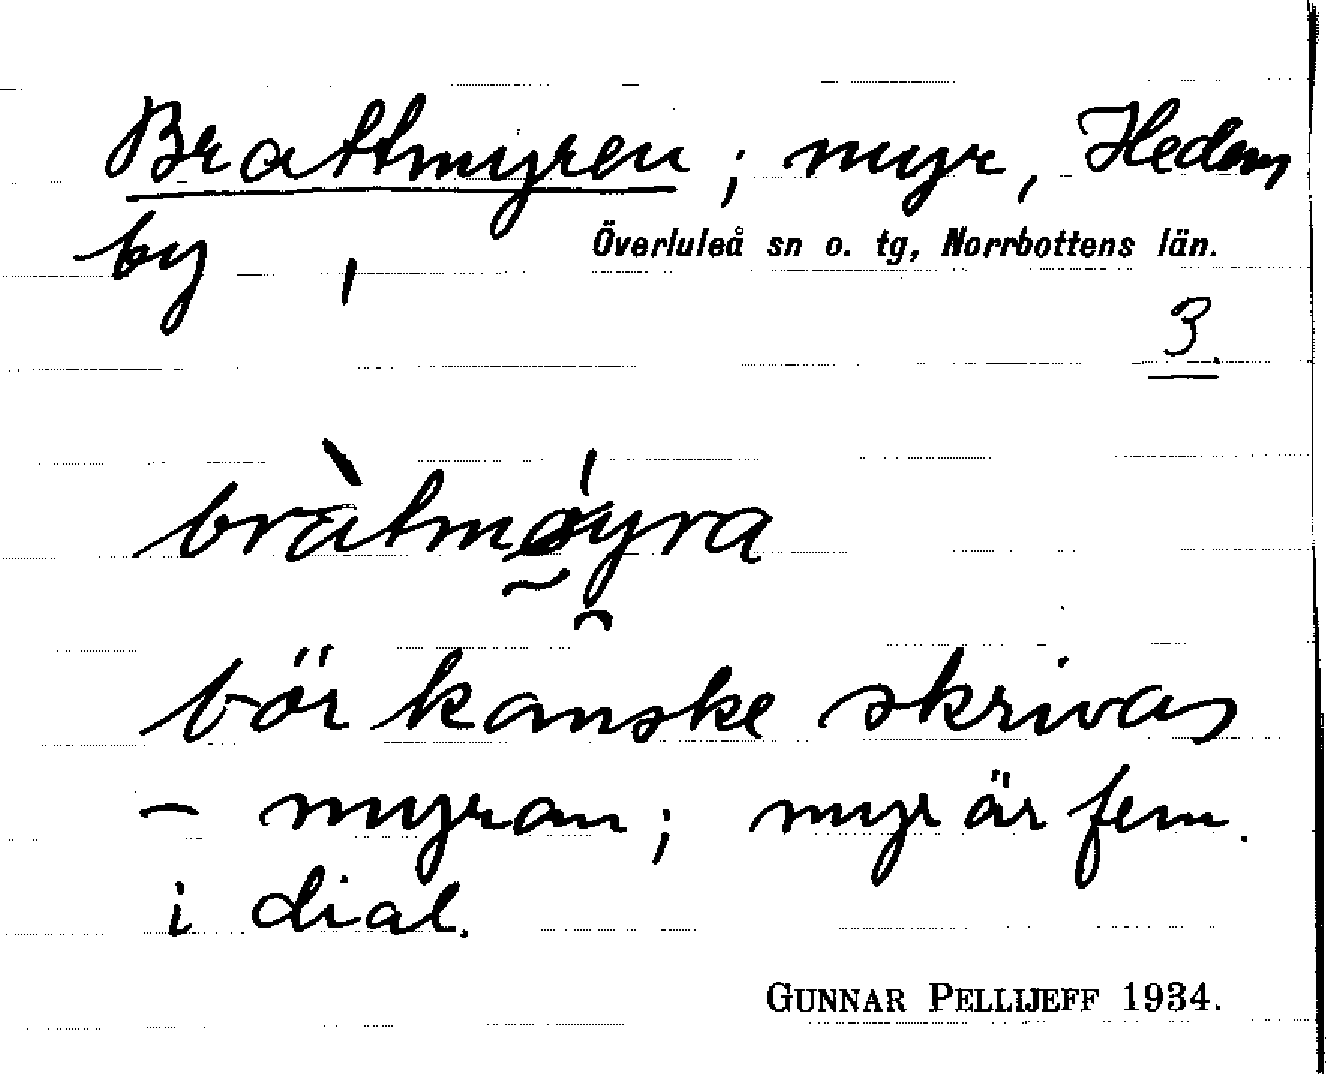 Brattmyren; myr, Hedens
by,
Överluleå sn o. tg, Norrbottens län.
3.
bràtmǿyra
bör kanske skrivas
- myran; myr är fem.
i dial.
GUNNAR PELLIJEFF 1934.